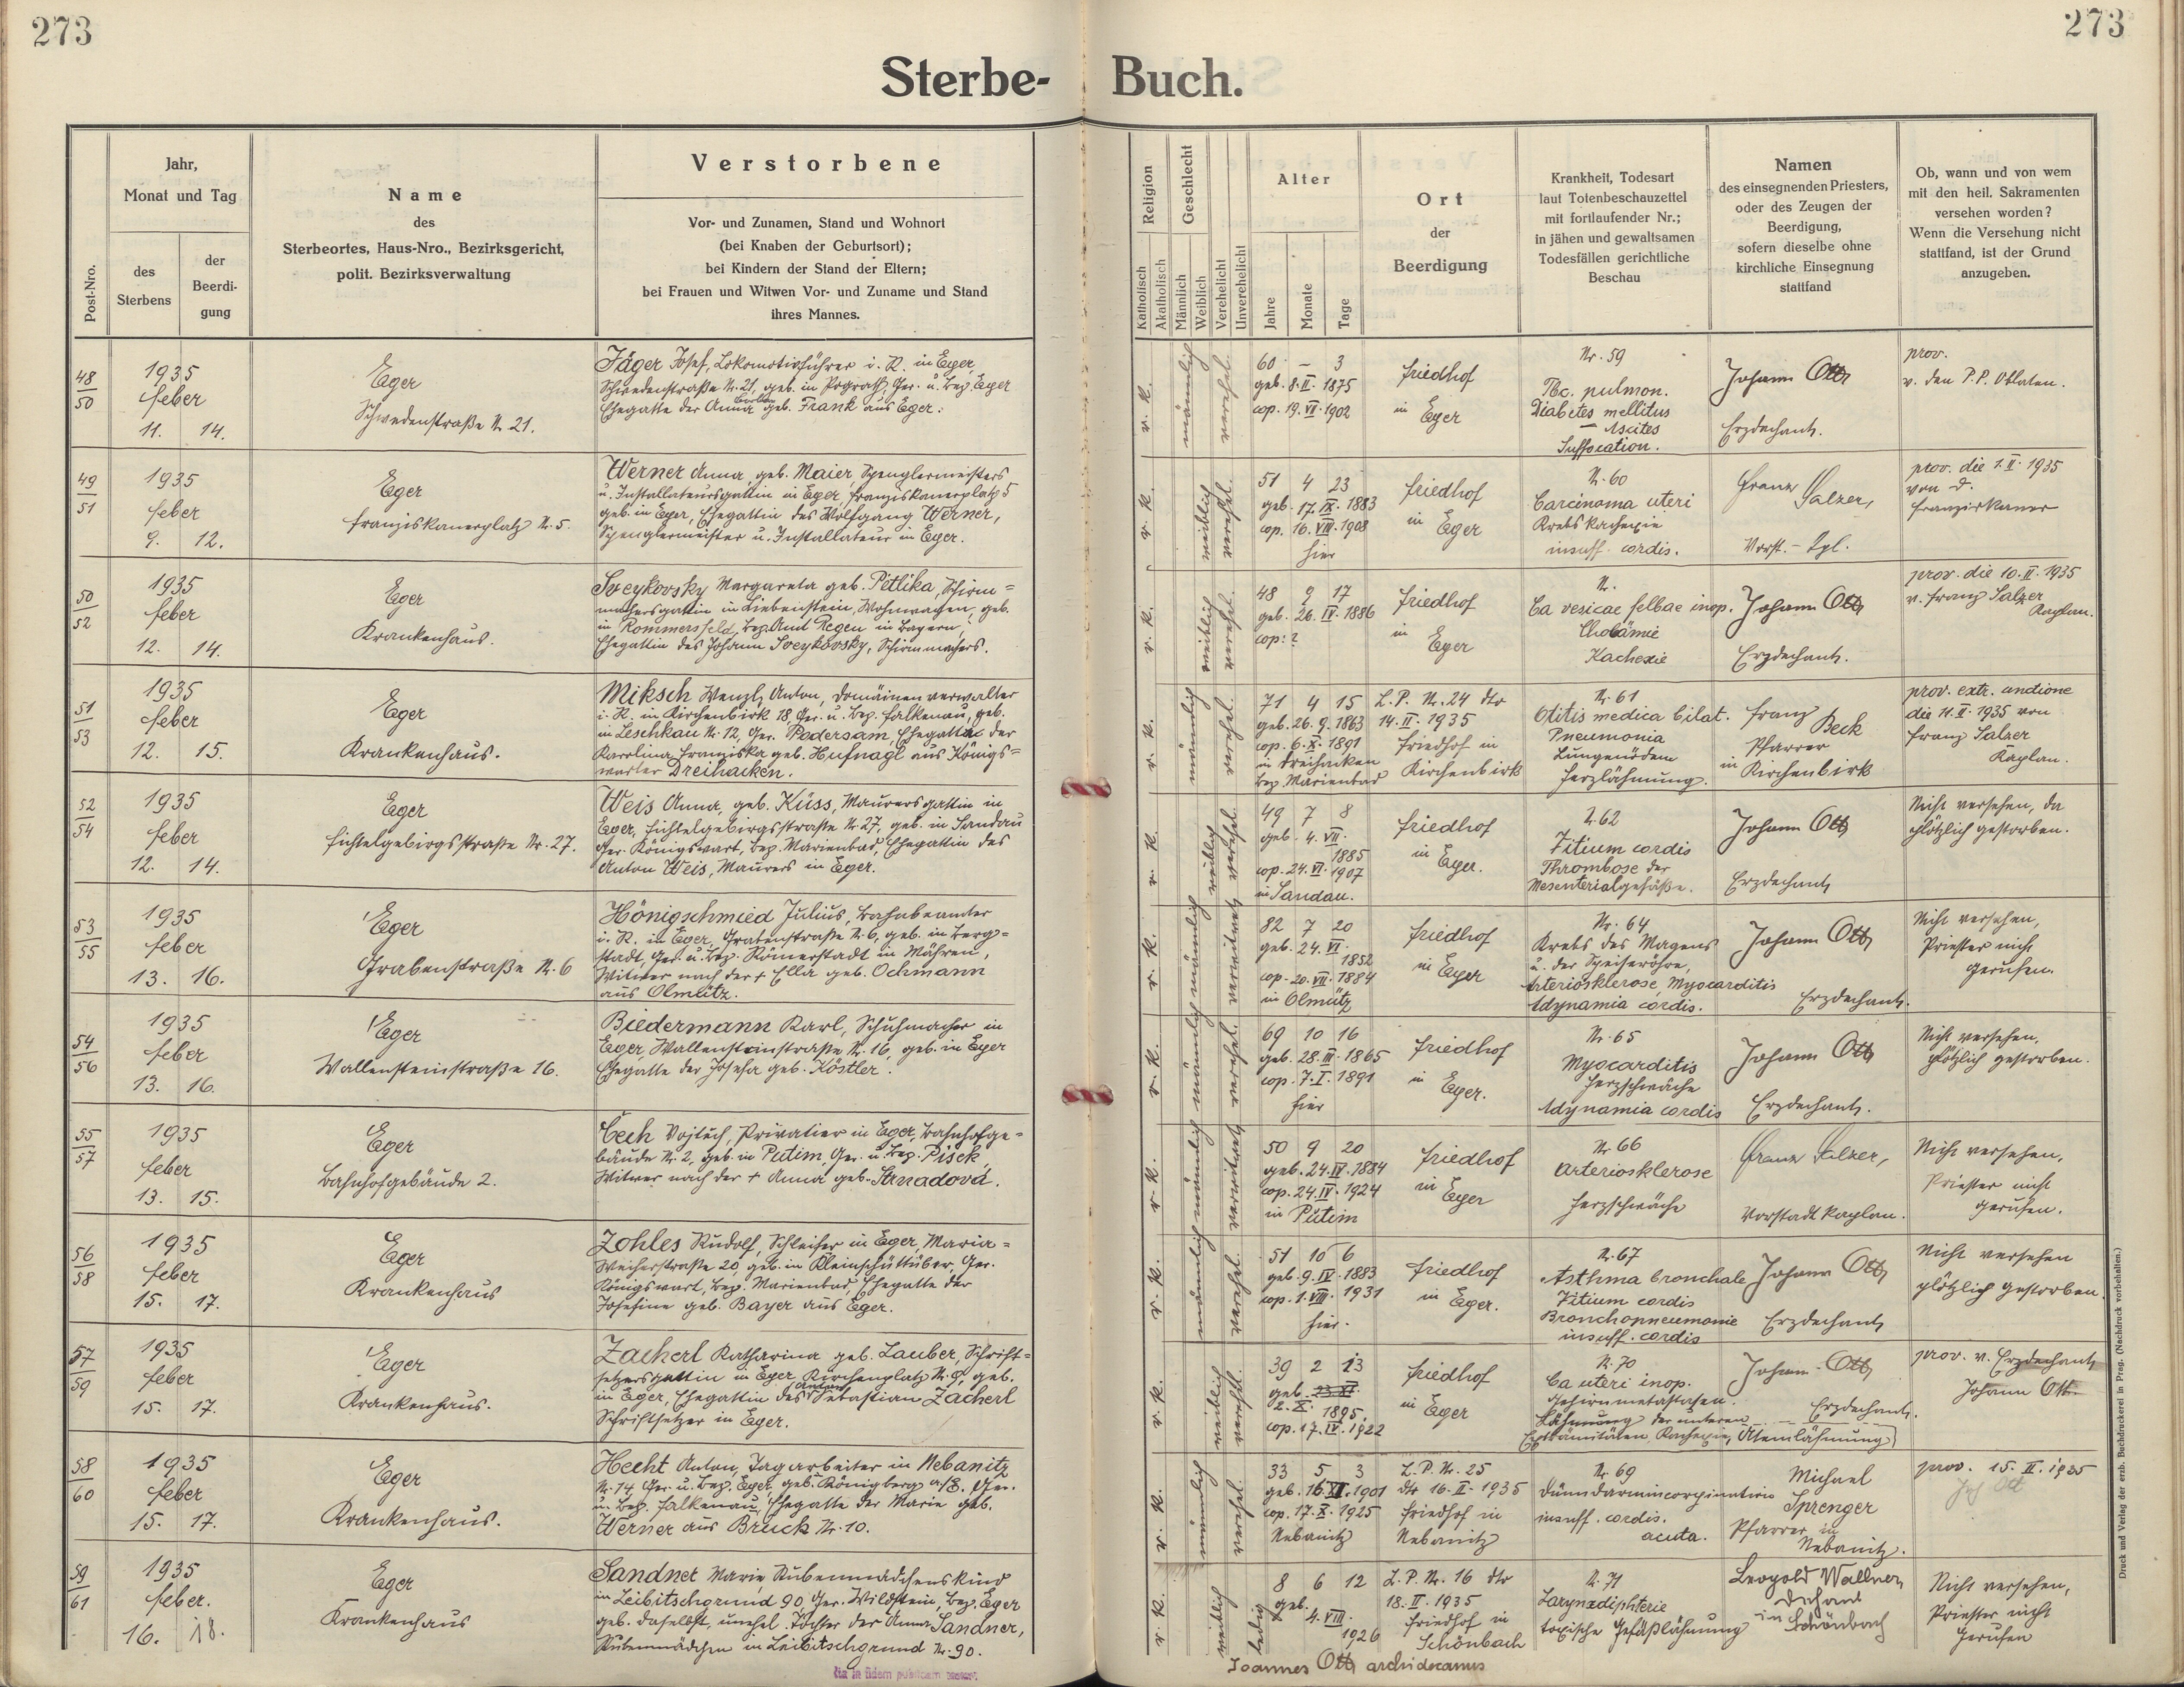 273
273
Sterbe- Buch.
Post-Nro.
Jahr,
Monat und Tag
des
Sterbens
der
Beerdi-
gung
Name
des
Sterbeortes, Haus-Nro., Bezirksgericht,
polit. Bezirksverwaltung
Verstorbene
Vor- und Zunamen, Stand und Wohnort
(bei Knaben der Geburtsort);
bei Kindern der Stand der Eltern;
bei Frauen und Witwen Vor- und Zuname und Stand
ihres Mannes.
Religion
Katholisch
Akatholisch
Geschlecht
Männlich
Weiblich
Verehelicht
Unverehelicht
Alter
Jahre
Monate
Tage
Ort
der
Beerdigung
Krankheit, Todesart
laut Totenbeschauzettel
mit fortlaufender Nr.;
in jähen und gewaltsamen
Todesfällen gerichtliche
Beschau
Namen
des einsegnenden Priesters,
oder des Zeugen der
Beerdigung,
sofern dieselbe ohne
kirchliche Einsegnung
stattfand
Ob, wann und von wem
mit den heil. Sakramenten
versehen worden?
Wenn die Versehung nicht
stattfand, ist der Grund
anzugeben.
48
50
1935
feber
11. 14.
Eger
Schwedenstraße N. 21.
Jäger Josef, Lokomotivführer i. R. in Eger,
Schwedenstraße N. 21, geb. in Pograth, Ger. u. Bez. Eger
Ehegatte der Anna geb. Frank aus Eger.
r. K.
männlich
verehel.
60 — 3
geb. 8. II. 1875
cop. 19. VI. 1902
friedhof
in Eger
Nr. 59
Tbc. pulmon.
Diabetes mellitus
Ascites
Suffocation.
Johann Ott
Erzdechant.
prov.
v. den P.P. Oblaten.
49
51
1935
feber
9. 12.
Eger
franziskanerplatz N. 5.
Werner Anna, geb. Maier, Spenglermeisters
u. Installateursgattin in Eger, franziskanerplatz 5
geb. in Eger, Ehegattin des Wolfgang Werner,
Spenglermeister u. Installateur in Eger.
r. K.
weiblich
verehel.
51 4 23
geb. 17. IX. 1883
cop. 16. VIII. 1908
hier
friedhof
in Eger
N. 60
Carcinoma uteri
Krebskachexie
insuff. cordis.
Franz Salzer,
Vorst.-Kpl.
prov. die 1. II. 1935
von d.
franziskaner
50
52
1935
feber
12. 14.
Eger
Krankenhaus.
Sveykovsky Margareta geb. Petlika, Schirm=
machersgattin in Liebenstein, Wohnwagen, geb.
in Rommersfeld, Bez. Amt Regen in Bayern,
Ehegattin des Johann Sveykovsky, Schirmmachers.
r. K.
weiblich
verehel.
48 9 17
geb. 26. IV. 1886
cop: ?
friedhof
in
Eger
N.
Ca vesicae felbae inop.
Cholämie
Kachexie
Johann Ott
Erzdechant.
prov. die 10. II. 1935
v. franz Salzer
Kaplan.
51
53
1935
feber
12. 15.
Eger
Krankenhaus.
Miksch Wenzl, Anton, Domäinenverwalter
i. R. in Kirchenbirk 18, Ger. u. Bez. falkenau, geb.
in Leschkau N. 12, Ger. Podersam, Ehegatte der
Karolina Franziska geb. Hufnagl aus Königs=
warter Dreihacken.
r. K.
männlich
verehel.
71 4 15
geb. 26. 9. 1863
cop. 6. X. 1891
in Dreihacken
Bez. Marienbad
L.P. N. 24 dto
14. II. 1935
friedhof in
Kirchenbirk
N. 61
Otitis medica bilat.
Pneumonia
Lungenödem
Herzlähmung.
franz Beck
Pfarrer
in Kirchenbirk
prov. extr. unctione
die 11. II. 1935 von
franz Salzer
Kaplan.
52
54
1935
feber
12. 14.
Eger
fichtelgebirgsstraße Nr. 27.
Weis Anna, geb. Küss, Maurersgattin in
Eger, fichtelgebirgsstraße N. 27, geb. in Sandau
Ger. Königswart, Bez. Marienbad, Ehegattin des
Anton Weis, Maurers in Eger.
r. K.
weiblich
verehel.
49 7 8
geb. 4. VII.
1885
cop. 24. VI. 1907
in Sandau.
friedhof
in Eger.
N. 62
Vitium cordis
Thrombose der
Mesenterialgefäße.
Johann Ott
Erzdechant
Nicht versehen, da
plötzlich gestorben.
53
55
1935
feber
13. 16.
Eger
Grabenstraße N. 6
Hönigschmied Julius, Bahnbeamter
i. R. in Eger, Grabenstraße N. 6, geb. in Berg=
stadt, Ger. u. Bez. Römerstadt in Mähren,
Witwer nach der + Ella geb. Ochmann
aus Olmütz.
r. K.
männlich
verwitwet
82 7 20
geb. 24. VI.
1852
cop. 20. VII. 1884
in Olmütz
friedhof
in Eger
Nr. 64
Krebs des Magens
u. der Speiseröhre,
Arteriosklerose, Myocarditis
Adynamia cordis.
Johann Ott
Erzdechant.
Nicht versehen,
Priester nicht
gerufen.
54
56
1935
feber
13. 16.
Eger
Wallensteinstraße 16.
Biedermann Karl, Schuhmacher in
Eger, Wallensteinstraße N. 16, geb. in Eger
Ehegatte der Josefa geb. Köstler.
r. K.
männlich
verehel.
69 10 16
geb. 28. III. 1865
cop. 7. I. 1891
hier
friedhof
in Eger.
Nr. 65
Myocarditis
Herzschwäche
Adynamia cordis
Johann Ott
Erzdechant.
Nicht versehen,
plötzlich gestorben.
55
57
1935
feber
13. 15.
Eger
Bahnhofgebäude 2.
Cech Vojtech, Privatier in Eger, Bahnhofge=
bäude N. 2, geb. in Putim, Ger. u. Bez. Pisek,
Witwer nach der + Anna geb. Strnadová.
r. K.
männlich
verwitwet
50 9 20
geb. 24. IV. 1884
cop. 24. IV. 1924
in Putim
friedhof
in Eger
Nr. 66
Arteriosklerose
Herzschwäche
Franz Salzer,
Vorstadtkaplan.
Nicht versehen,
Priester nicht
gerufen.
56
58
1935
feber
15. 17.
Eger
Krankenhaus
Zohles Rudolf, Schleifer in Eger, Maria=
Weiherstraße 20, geb. in Kleinschüttüber, Ger.
Königswart, Bez. Marienbad, Ehegatte der
Josefine geb. Bayer aus Eger.
r. K.
männlich
verehel.
51 10 6
geb. 9. IV. 1883
cop. 1. VIII. 1931
hier.
friedhof
in Eger.
N. 67
Asthma bronchale
Vitium cordis
Bronchopneumonie
insuff. cordis
Johann Ott
Erzdechant
Nicht versehen
plötzlich gestorben.
57
59
1935
feber
15. 17.
Eger
Krankenhaus.
Zacherl Katharina geb. Lauber, Schrift=
setzersgattin in Eger, Kirchenplatz N. 9, geb.
in Eger, Ehegattin des Anton Sebastian Zacherl
Schriftsetzer in Eger.
r. K.
weiblich
verehel.
39 2 13
geb. 23. XI.
2. X. 1895.
cop. 17. IV. 1922
friedhof
in Eger
N. 70
Ca uteri inop.
Gehirnmetastasen.
Lähmung der unteren
Extremitäten, Kachexie, (Atemlähmung)
Johann Ott
Erzdechant.
prov. v. Erzdechant
Johann Ott
58
60
1935
feber
15. 17.
Eger
Krankenhaus.
Hecht Anton, Tagarbeiter in Nebanitz
N. 14 Ger. u. Bez. Eger, geb. Königsberg a/E. Ger.
u. Bez. falkenau, Ehegatte der Marie geb.
Werner aus Bruck N. 10.
r. K.
männlich
verehel.
33 5 3
geb. 16. XII. 1901
cop. 17. X. 1925
Nebanitz
L.P. Nr. 25
dto 16. II. 1935
friedhof in
Nebanitz
Nr. 69
insuff. cordis.
acuta.
Michael
Sprenger
Pfarrer in
Nebanitz.
prov. 15. II. 1935
Joh Ott
59
61
1935
feber.
16. 18.
Eger
Krankenhaus
Sandner Marie, Stubenmädchenskind
in Leibitschgrund 90, Ger. Wildstein, Bez. Eger
geb. daselbst, unehel. Tochter der Anna Sandner,
Stubenmädchen in Leibitschgrund N. 90.
r. K.
weiblich
ledig
8 6 12
geb.
4. VIII.
1926
L.P. Nr. 16 dto
18. II. 1935
friedhof in
Schönbach
N. 71
Larynxdiphterie
toxische Gefäßlähmung
Leopold Wallner
Dechant
in Schönbach
Nicht versehen,
Priester nicht
gerufen
Joannes Ott archidecanus
Druck und Verlag der erzb. Buchdruckerei in Prag. (Nachdruck vorbehalten.)